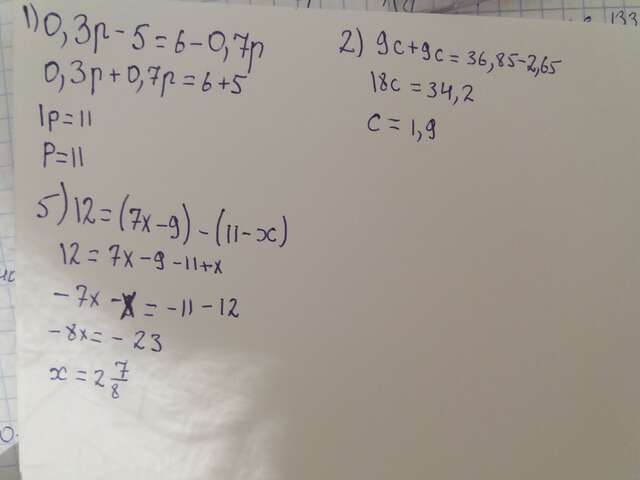 1) 0,3p - 5 = 6 - 0,7p
0,3p + 0,7p = 6 + 5
1p = 11
P = 11
2) 9c + 9c = 36,85 - 2,65
18c = 34,2
c = 1,9
5) 12 = (7x - 9) - (11 - x)
12 = 7x - 9 - 11 + x
- 7x - x = - 11 - 12
- 8x = - 23
x = 2 7/8
133